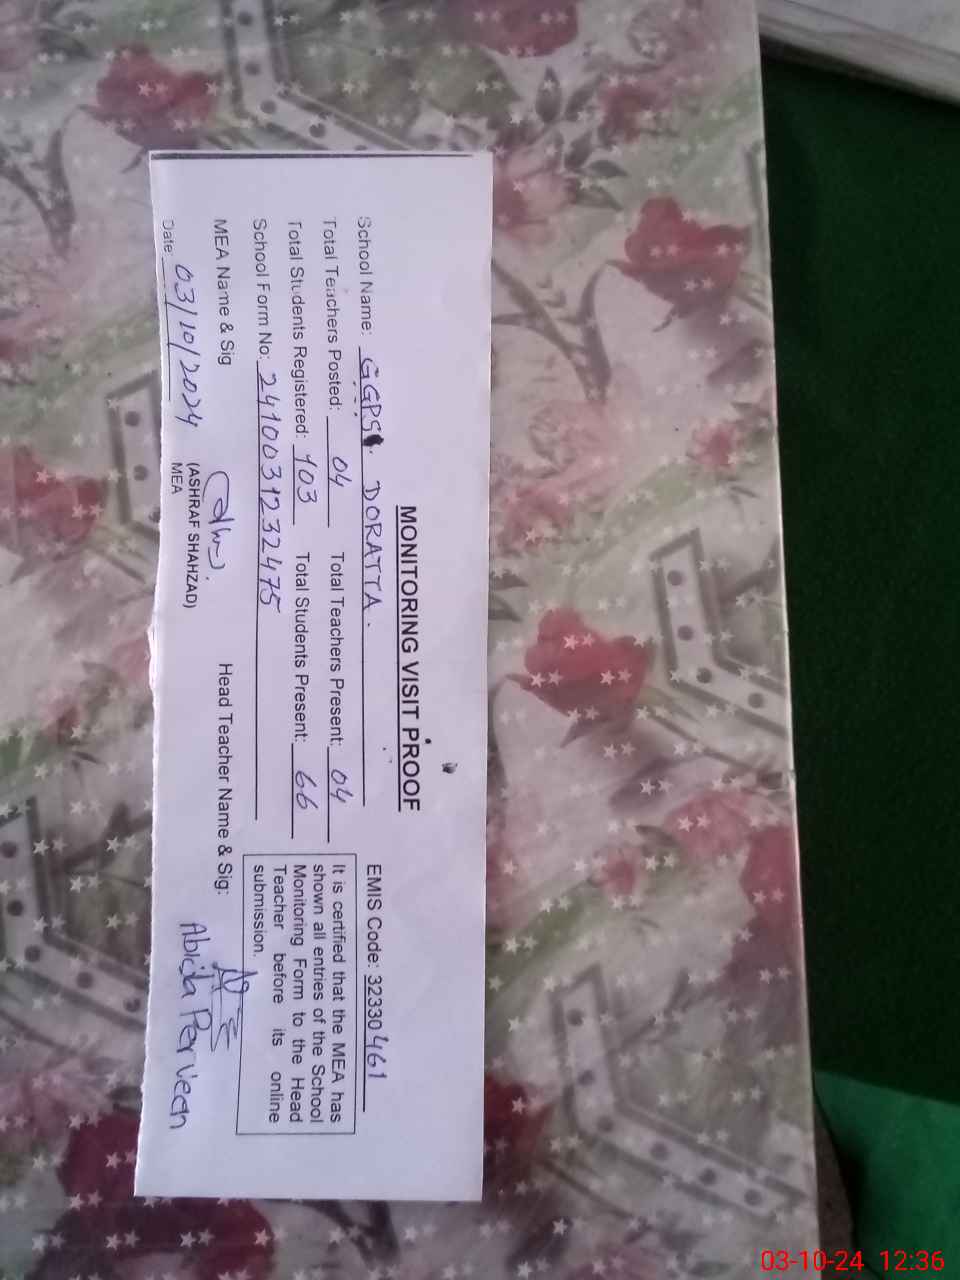 MONITORING VISIT PROOF
School Name: GGPS DORATTA. EMIS Code: 32330461
Total Teachers Posted: 04 Total Teachers Present: 04
Total Students Registered: 103 Total Students Present: 66
School Form No: 2410031232475
It is certified that the MEA has
shown all entries of the School
Monitoring Form to the Head
Teacher before its online
submission.
MEA Name & Sig Head Teacher Name & Sig:
(ASHRAF SHAHZAD) Abida Perveen
MEA
Date: 03/10/2024
03-10-24 12:36